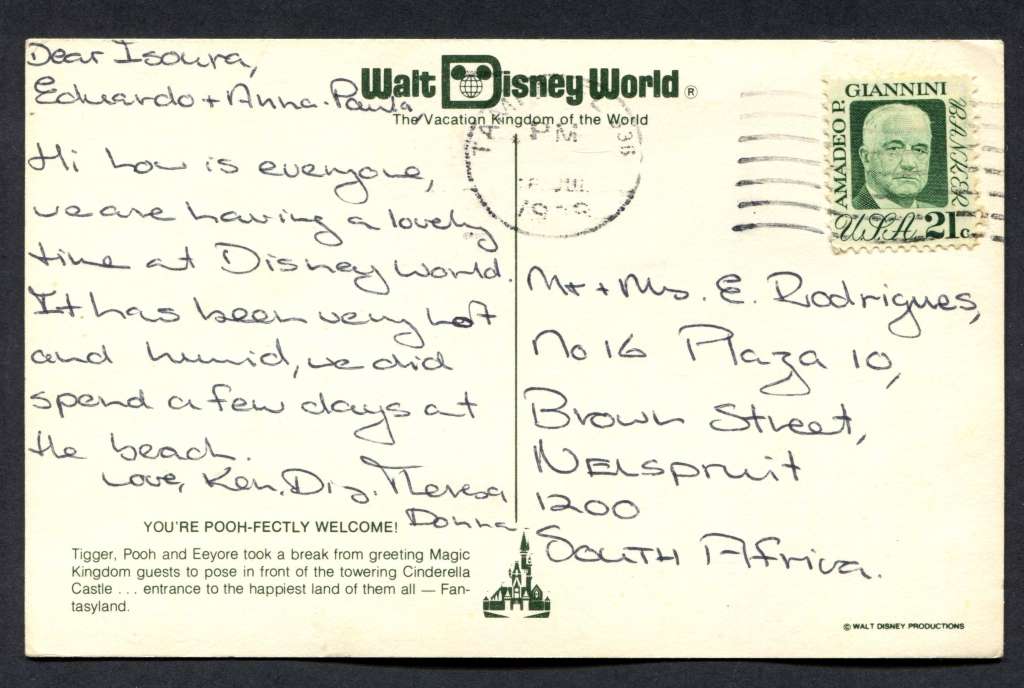 Dear Isoura,
Eduardo + Anna-Paula
Walt Disney World ®
The Vacation Kingdom of the World
PM
JUL
AMADEO P. GIANNINI
BANKER
USA 21c
Hi how is everyone,
we are having a lovely
time at Disney World.
It has been very hot
and humid, we did
spend a few days at
the beach.
Love, Ken. Di, Theresa
Donna.
Mr + Mrs. E. Rodrigues,
No 16 Plaza 10,
Brown Street,
Nelspruit
1200
South Africa.
YOU'RE POOH-FECTLY WELCOME!
Tigger, Pooh and Eeyore took a break from greeting Magic
Kingdom guests to pose in front of the towering Cinderella
Castle . . . entrance to the happiest land of them all — Fan-
tasyland.
© WALT DISNEY PRODUCTIONS